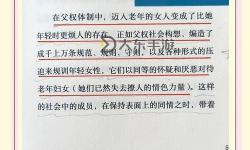 在父权体制中，迈入老年的女人变成了比她
年轻时更烦人的存在。正如父权社会构想、编造了
成千上万条规范、规则、守则，以及各种形式的压
迫来规训年轻女性，它们以同等的怀疑和厌恶对待
老年妇女（她们已然失去撩人的情色力量）。这样
的社会中的成员，在保持表面上的同情之时，带着
大东手游